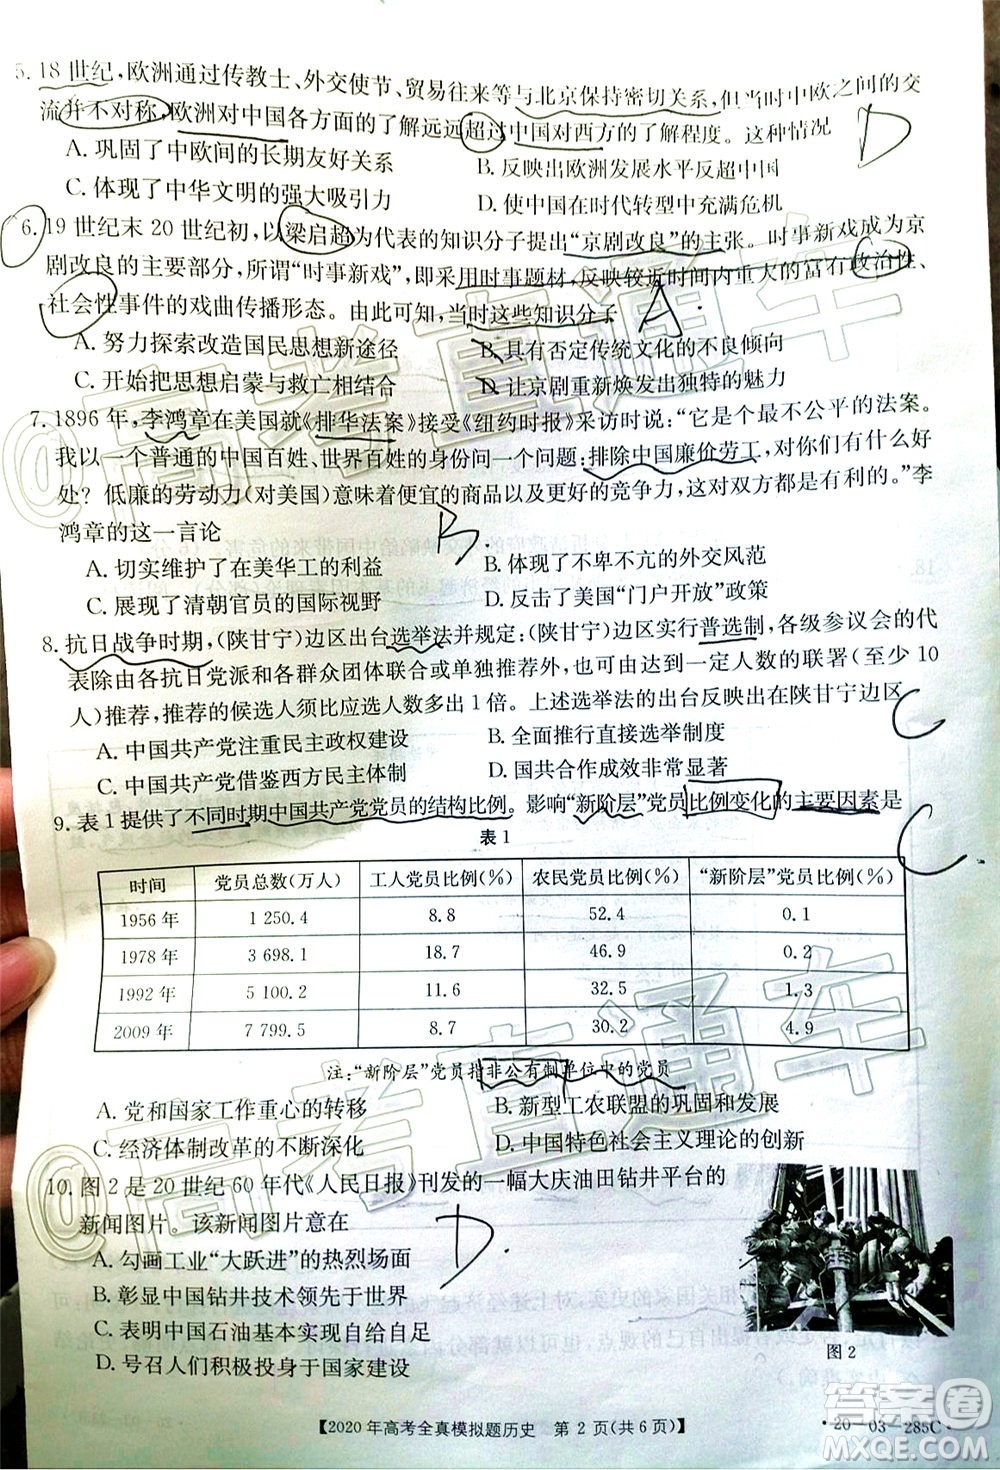 5. 18 世纪，欧洲通过传教士、外交使节、贸易往来等与北京保持密切关系，但当时中欧之间的交
流并不对称，欧洲对中国各方面的了解远远超过中国对西方的了解程度。这种情况
D
A. 巩固了中欧间的长期友好关系 B. 反映出欧洲发展水平反超中国
C. 体现了中华文明的强大吸引力 D. 使中国在时代转型中充满危机
6. 19 世纪末 20 世纪初，以梁启超为代表的知识分子提出“京剧改良”的主张。时事新戏成为京
剧改良的主要部分，所谓“时事新戏”，即采用时事题材，反映较近时间内重大的富有政治性、
社会性事件的戏曲传播形态。由此可知，当时这些知识分子
A.
A. 努力探索改造国民思想新途径 B. 具有否定传统文化的不良倾向
C. 开始把思想启蒙与救亡相结合 D. 让京剧重新焕发出独特的魅力
7. 1896 年，李鸿章在美国就《排华法案》接受《纽约时报》采访时说：“它是个最不公平的法案。
我以一个普通的中国百姓、世界百姓的身份问一个问题：排除中国廉价劳工，对你们有何好
处？低廉的劳动力（对美国）意味着便宜的商品以及更好的竞争力，这对双方都好。”李
鸿章的这一言论
B.
A. 切实维护了在美华工的利益 B. 体现了不卑不亢的外交风范
C. 展现了清朝官员的国际视野 D. 反击了美国“门户开放”政策
8. 抗日战争时期，（陕甘宁）边区出台选举法并规定：（陕甘宁）边区实行普选制，各级参议会的代
表除由各抗日党派和各群众团体联合或单独推荐外，可以由达到一定人数的联署（至少 10
人）推荐，推荐的候选人须比应选人数多出 1 倍。上述选举法的出台反映出在陕甘宁边区
C
A. 中国共产党注重民主政权建设 B. 全面推行直接选举制度
C. 中国共产党借鉴西方民主体制 D. 国共合作成效非常显著
9. 表 1 提供了不同时期中国共产党党员的结构比例。影响“新阶层”党员比例变化的主要因素是
C
表 1
时间 党员总数(万人) 工人党员比例(%) 农民党员比例(%) “新阶层”党员比例(%)
1956 年 1 250.4 8.8 52.4 0.1
1978 年 3 698.1 18.7 46.9 0.2
1992 年 5 100.2 11.6 32.5 1.3
2009 年 7 799.5 8.7 30.2 4.9
注：“新阶层”党员指非公有制单位中的党员
A. 党和国家工作重心的转移 B. 新型工农联盟的巩固和发展
C. 经济体制改革的不断深化 D. 中国特色社会主义理论的创新
10. 图 2 是 20 世纪 60 年代《人民日报》刊发的一幅大庆油田钻井平台的
新闻图片。该新闻图片意在
D.
A. 勾画工业“大跃进”的热烈场面
B. 彰显中国钻井技术领先于世界
C. 表明中国石油基本实现自给自足
D. 号召人们积极投身于国家建设
图 2
【2020 年高考全真模拟题历史 第 2 页(共 6 页)】
·20-03-285C·
@高考直通车
@高考直通车
答案圈
MXQE.COM